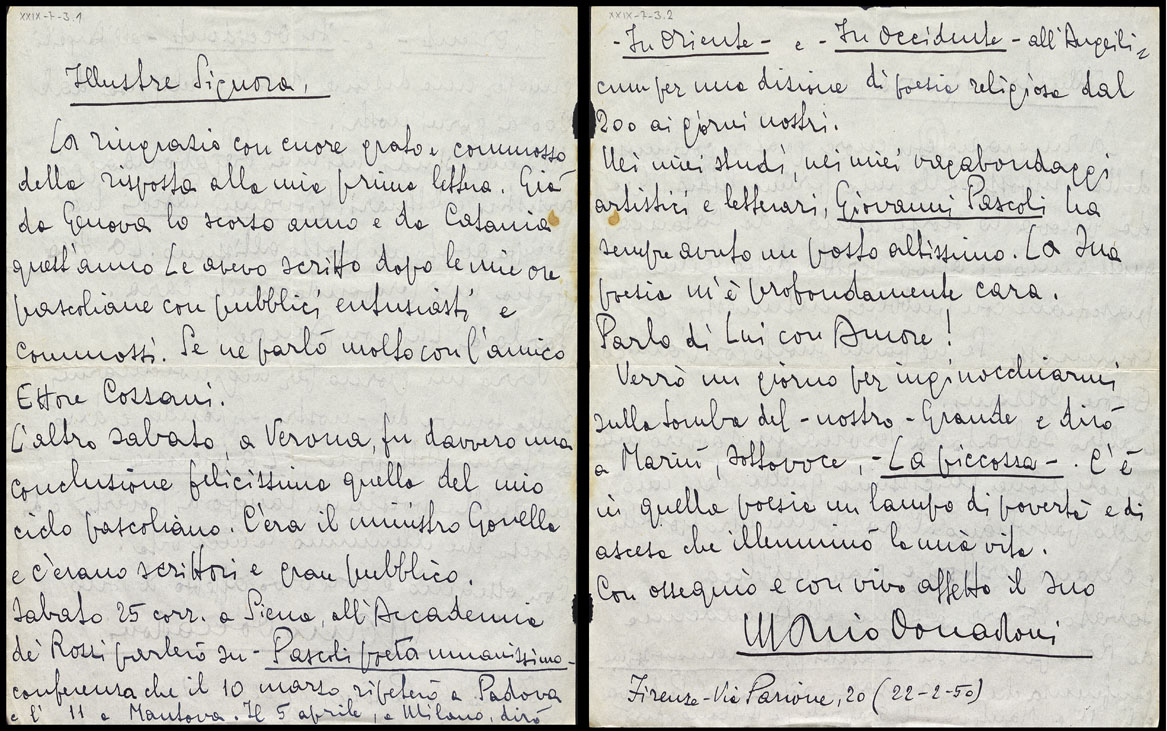 XXIX-7-3.1
Illustre Signora,
La ringrazio con cuore grato e commosso
della risposta alla mia prima lettera. Già
da Genova lo scorso anno e da Catania
quest'anno Le avevo scritto dopo le mie ore
pascoliane con pubblici entusiasti e
commossi. Se ne parlò molto con l'amico
Ettore Cozzani.
L'altro sabato, a Verona, fu davvero una
conclusione felicissima quella del mio
ciclo pascoliano. C'era il ministro Gonella
e c'erano scrittori e gran pubblico.
Sabato 25 corr. a Siena, all'Accademia
de' Rozzi parlerò su - Pascoli poeta umanissimo -
conferenza che il 10 marzo ripeterò a Padova
e l' 11 a Mantova. Il 5 aprile, a Milano, dirò
XXIX-7-3.2
- In Oriente - e - In Occidente - all'Angeli=
cum per una dizione di poesia religiosa dal
200 ai giorni nostri.
Nei miei studi, nei miei vagabondaggi
artistici e letterari, Giovanni Pascoli ha
sempre avuto un posto altissimo. La Sua
poesia m'è profondamente cara.
Parlo di Lui con Amore!
Verrò un giorno per inginocchiarmi
sulla tomba del - nostro - Grande e dirò
a Mariù, sottovoce, - La piccozza -. C'è
in quella poesia un lampo di povertà e di
ascesa che illuminò la mia vita.
Con ossequio e con vivo affetto il Suo
Mario Donadoni
Firenze - Via Parione, 20 (22-2-50)